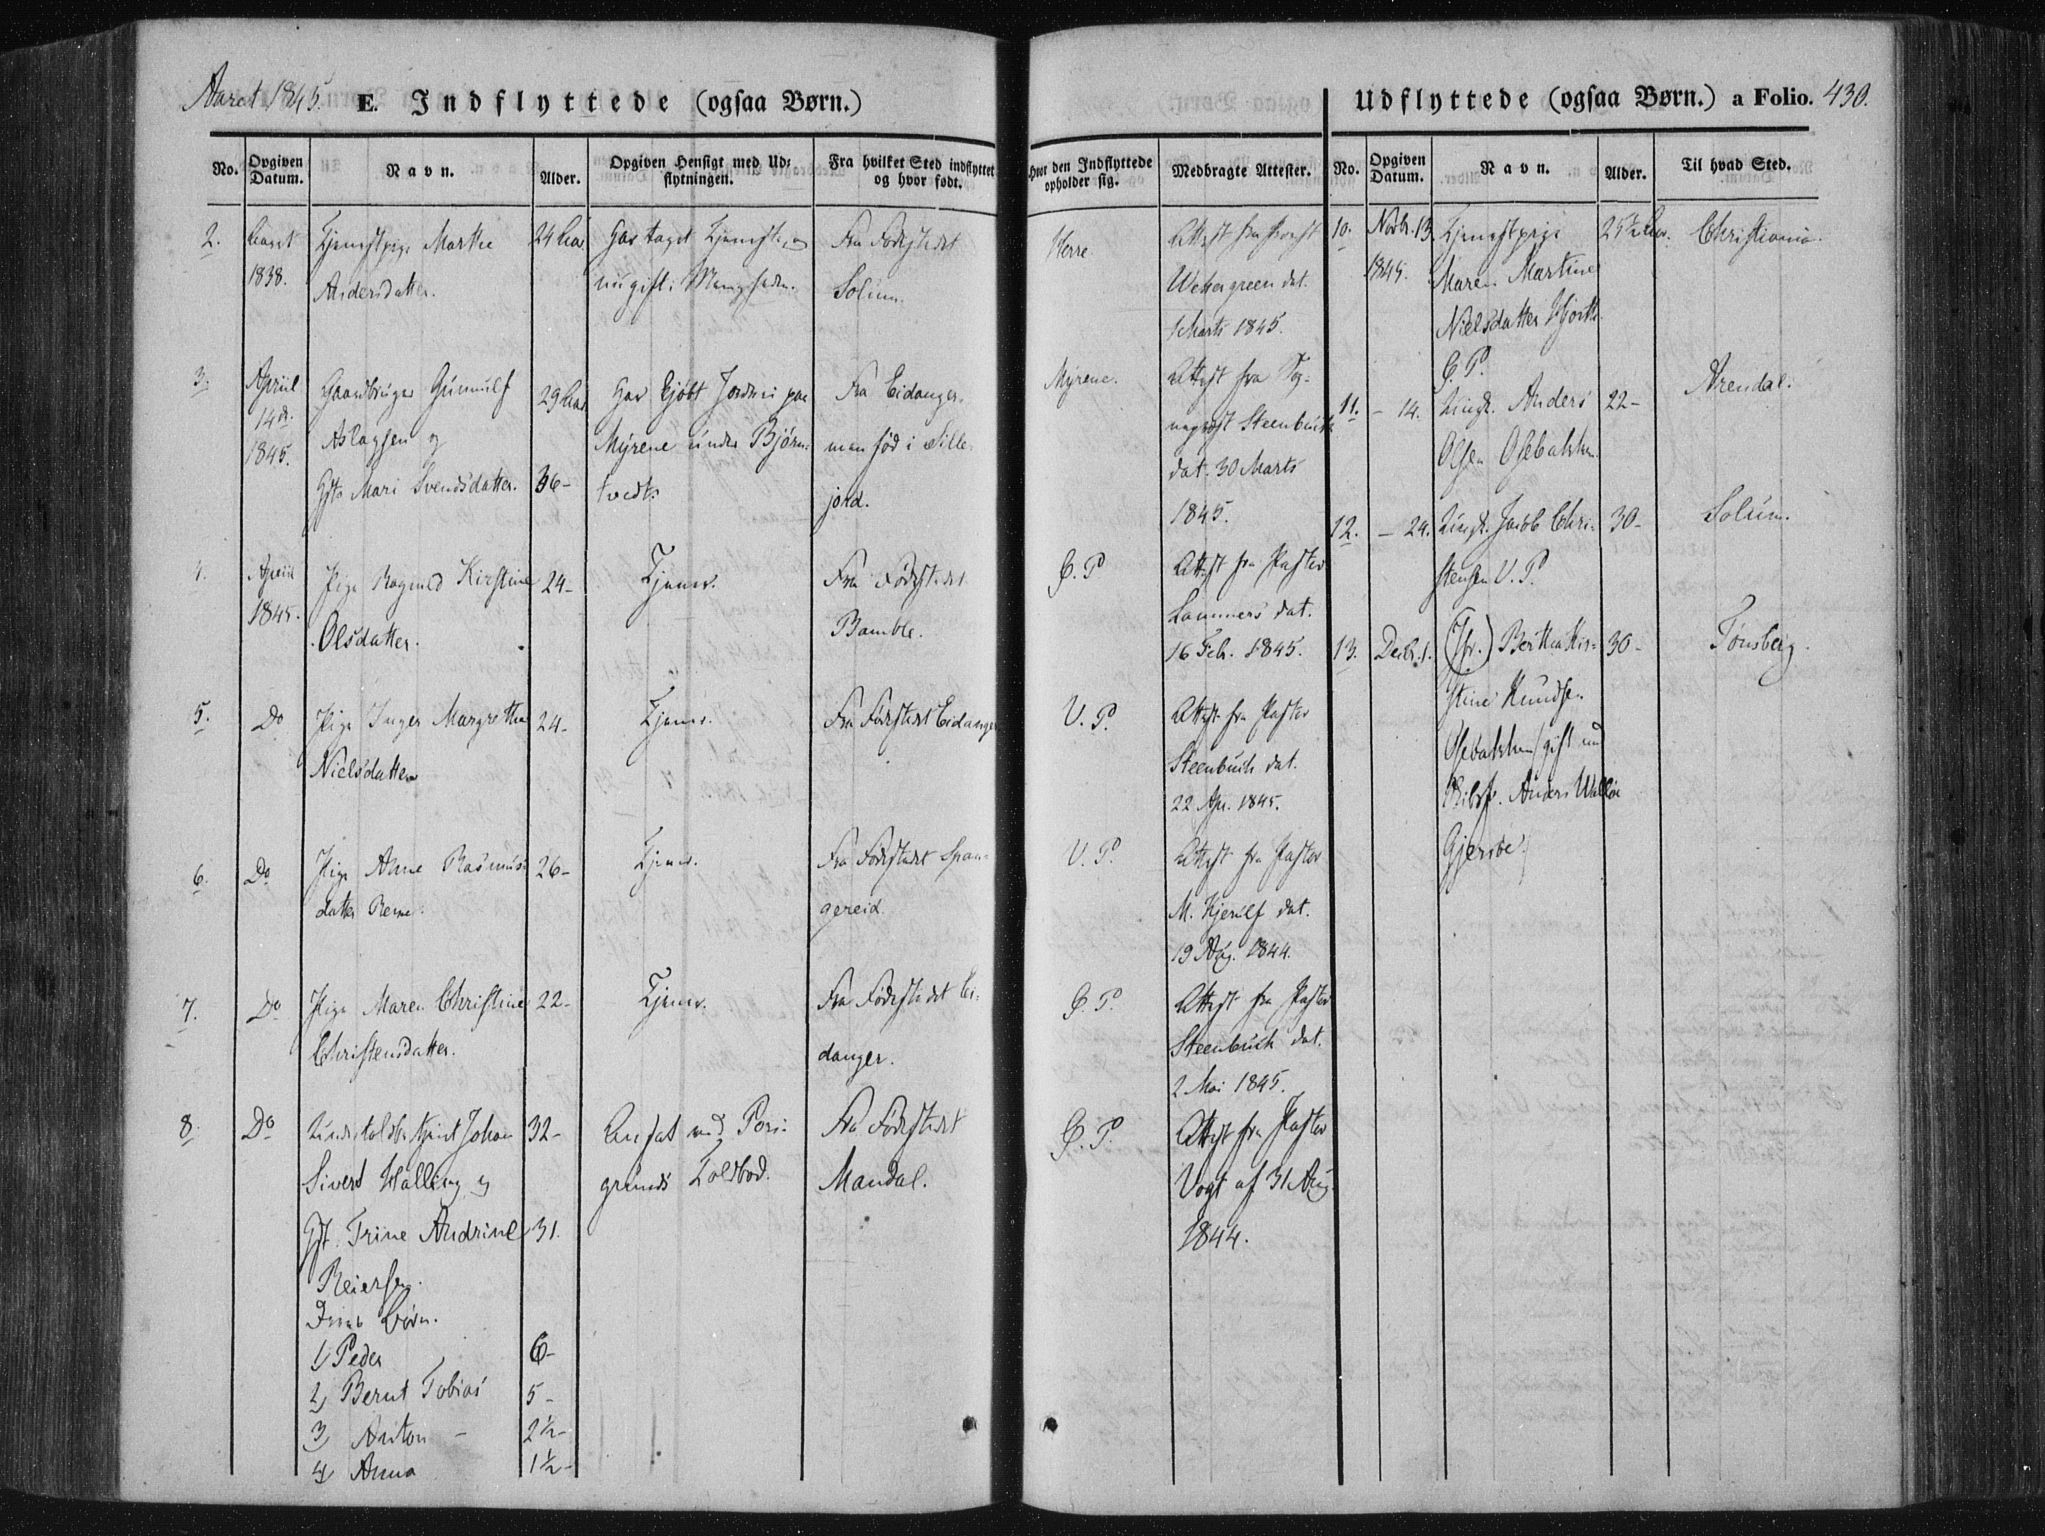 Aaret 1845. E. Indflyttede (ogsaa Børn.)
Udflyttede (ogsaa Børn.) a Folio. 430.
No. Opgiven Datum. Navn. Alder. Opgiven Hensigt med Udflytningen. Fra hvilket Sted indflyttet og hvor født.
Hvor den Indflyttede opholder sig. Medbragte Attester. No. Opgiven Datum. Navn. Alder. Til hvad Sted.
2. 1838. Tjenestpige Marthe 24 Aar. Har taget Tjeneste, og Fra Fødestedet
Andersdatter. nu gift i Menigheden. Solum.
Herre. Attest fra Provst
Wettergreen dat.
1 Marts 1845.
3. April Gaardbruger Gunnulf 29 Aar Har kjøbt Jordvei paa Fra Eidanger,
14d Aslagsen og Myrene under Bjørn- men fød i Sille-
1845. Gste Mari Svendsdatter. 36- tvedt. jord.
Myrene. Attest fra Sog-
neprest Steenbuch
dat. 30 Marts
1845.
4. April Pige Ragnild Kirstine 24- Tjener. Fra Fødestedet
1845. Olsdatter. Bamble.
Ø. P. Attest fra Pastor
Lammers dat.
16 Feb. 1845.
5. Do Pige Inger Margrethe 24- Tjener. Fra Fødestedet Eidanger
Nielsdatter
V. P. Attest fra Pastor
Steenbuch dat.
22 Apr. 1845.
6. Do Pige Anne Rasmus- 26- Tjener. Fra Fødestedet Span-
datter gereid.
V. P. Attest fra Pastor
M. Kjerulf dat.
19 Aug. 1844.
7. Do Pige Maren Christine 22- Tjener. Fra Fødestedet Ei-
Christensdatter. danger.
Ø. P. Attest fra Pastor
Steenbuch dat.
2 Mai 1845.
8. Do Undertoldbetjent Johan 32- Ansat ved Pors- Fra Fødestedet
Sivert Walling og grunds Toldbod. Mandal.
Gst. Trine Andrine 31.
Reiersen.
Disses Børn.
1, Peder 6-
2, Bernt Tobias 5-
3, Anton - 2½-
4, Anna 1½-
Ø. P. Attest fra Pastor
Vogt af 31 Aug.
1844.
10. Novbr. 13 Tjenestpige 25½ Aar. Christiania.
1845. Maren Martine
Nielsdatter Hjorth
Ø. P.
11. - 14. Ungk. Anders 22- Arendal.
Olsen Osebakken
12. - 24. Ungk. Jacob Chri- 30- Solum.
stensen V. P.
13. Decbr. 1. (Jfr.) Berthe Kir- 30- Tønsberg.
stine Knudsen
Osebakken (gift med
Skibsf. Anders Walløe
Gjersøe)